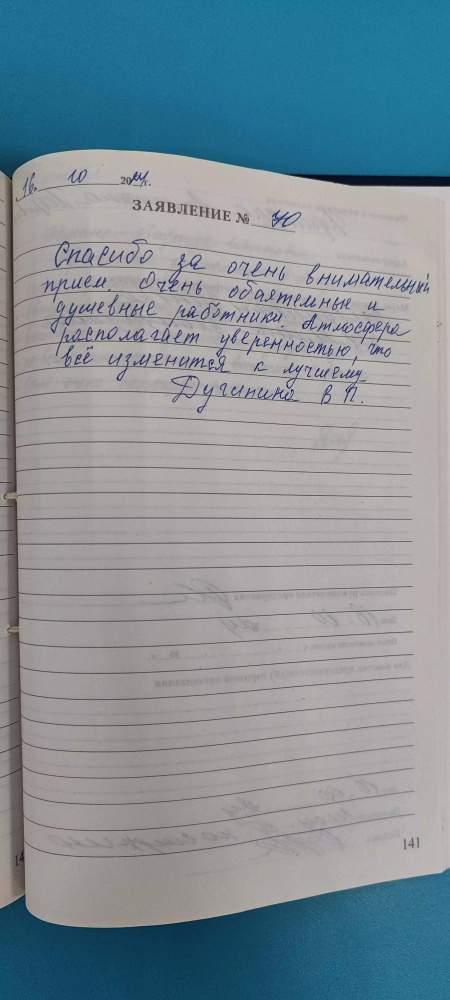 16. 10 2024г.
ЗАЯВЛЕНИЕ № 70
Спасибо за очень внимательный
прием. Очень обаятельные и
душевные работники. Атмосфера
располагает уверенностью, что
всё изменится к лучшему.
Дугинина В П.
141